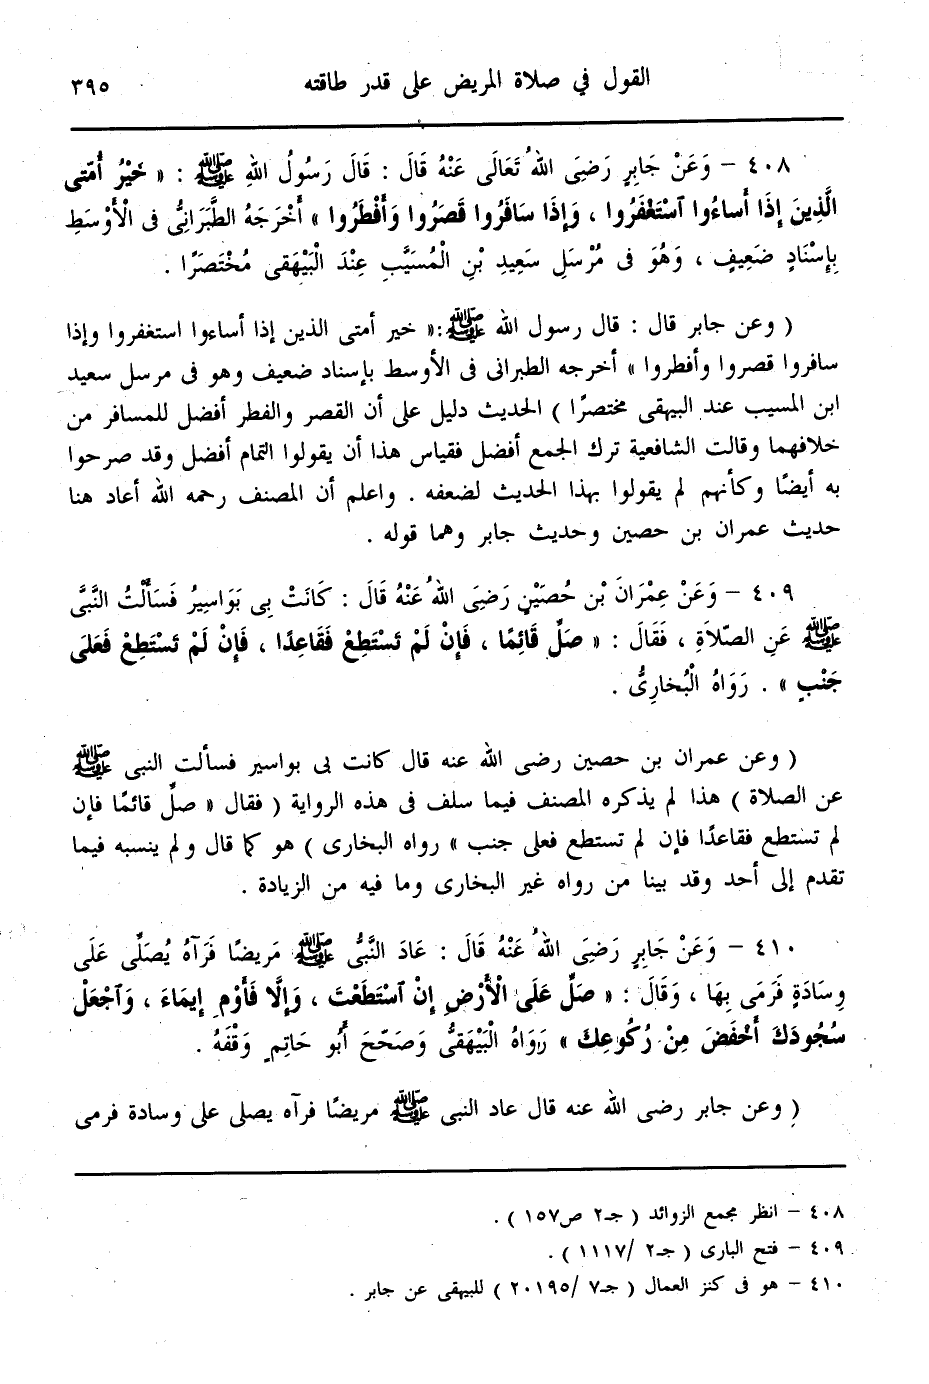 القول في صلاة المريض على قدر طاقته ٣٩٥
٤٠٨ – وَعَنْ جَابِرٍ رَضِىَ اللهُ تَعَالَى عَنْهُ قَالَ : قَالَ رَسُولُ اللهِ ﷺ : « خَيْرُ أُمَّتى
الَّذِينَ إِذَا أَساءُوا ٱسْتَغْفَرُوا ، وَإِذَا سَافَرُوا قَصَرُوا وَأَفْطَرُوا » أَخْرَجَهُ الطَّبَرَانِىُّ فى الْأَوْسَطِ
بِإِسْنَادٍ ضَعِيفٍ ، وَهُوَ فى مُرْسَلِ سَعِيدِ بْنِ الْمُسَيَّبِ عِنْدَ الْبَيْهَقى مُخْتَصَرًا .
( وعن جابر قال : قال رسول الله ﷺ :« خير أمتى الذين إذا أساءوا استغفروا وإذا
سافروا قصروا وأفطروا » أخرجه الطبرانى فى الأوسط بإسناد ضعيف وهو فى مرسل سعيد
ابن المسيب عند البيهقى مختصرًا ) الحديث دليل على أن القصر والفطر أفضل للمسافر من
خلافهما وقالت الشافعية ترك الجمع أفضل فقياس هذا أن يقولوا التمام أفضل وقد صرحوا
به أيضًا وكأنهم لم يقولوا بهذا الحديث لضعفه . واعلم أن المصنف رحمه الله أعاد هنا
حديث عمران بن حصين وحديث جابر وهما قوله .
٤٠٩ – وَعَنْ عِمْرَانَ بْن حُصَيْنٍ رَضِىَ اللهُ عَنْهُ قَالَ : كَانَتْ بِى بَوَاسِيرُ فَسَأَلْتُ النَّبِىَّ
ﷺ عَنِ الصَّلاَةِ ، فَقَالَ : « صَلِّ قَائِمًا ، فَإِنْ لَمْ تَسْتَطِعْ فَقَاعِدًا ، فَإِنْ لَمْ تَسْتَطِعْ فَعَلَى
جَنْبٍ » . رَوَاهُ الْبُخارِىُّ .
( وعن عمران بن حصين رضى الله عنه قال كانت بى بواسير فسألت النبى ﷺ
عن الصلاة ) هذا لم يذكره المصنف فيما سلف فى هذه الرواية ( فقال « صلِّ قائمًا فإن
لم تستطع فقاعدًا فإن لم تستطع فعلى جنب » رواه البخارى ) هو كما قال ولم ينسبه فيما
تقدم إلى أحد وقد بينا من رواه غير البخارى وما فيه من الزيادة .
٤١٠ – وَعَنْ جَابِرٍ رَضِىَ اللهُ عَنْهُ قَالَ : عَادَ النَّبىُّ ﷺ مَرِيضًا فَرَآهُ يُصَلِّى عَلَى
وِسَادَةٍ فَرَمَى بِهَا ، وَقَالَ : « صَلِّ عَلَى الْأَرْضِ إِنْ ٱسْتَطَعْتَ ، وَإِلَّا فَأَوْمِ إِيمَاءَ ، وَٱجْعَلْ
سُجُودَكَ أَخْفَضَ مِنْ رُكُوعِكَ » رَوَاهُ الْبَيْهَقىُّ وَصَحّحَ أَبُو حَاتِمٍ وَقْفَهُ .
( وعن جابر رضى الله عنه قال عاد النبى ﷺ مريضًا فرآه يصلى على وسادة فرمى
٤٠٨ – انظر مجمع الزوائد ( جـ٢ ص١٥٧ ) .
٤٠٩ – فتح البارى ( جـ٢ /١١١٧ ) .
٤١٠ – هو فى كنز العمال ( جـ٧ /٢٠١٩٥ ) للبيهقى عن جابر .